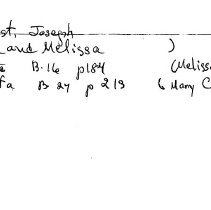 st, Joseph
and Melissa )
B. 16 p184 (Meliss
fa B 27 p 213 & Mary C